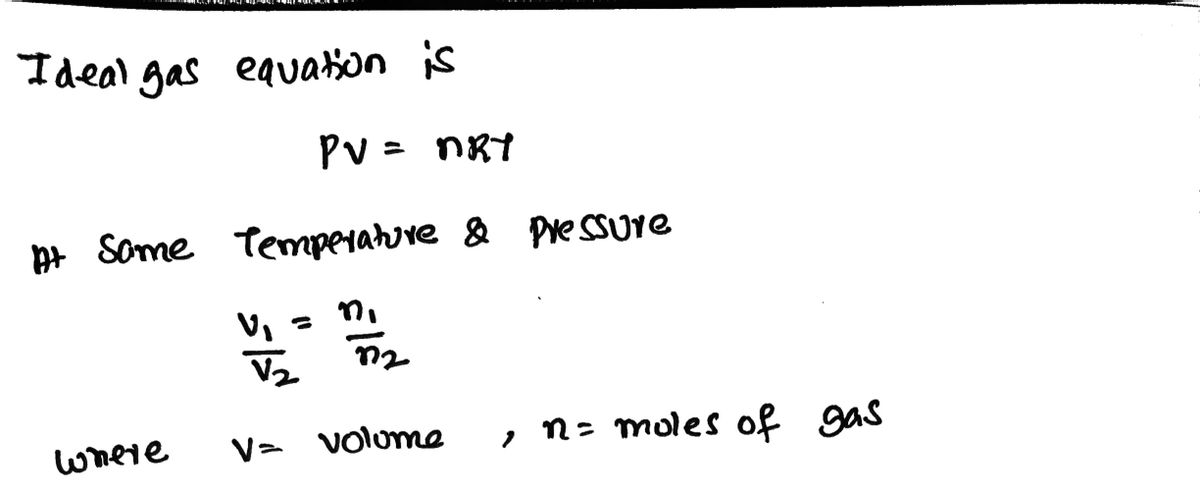 Ideal gas equation is
PV = nRT
At Same Temperature & Pressure
V₁/V₂ = n₁/n₂
where V= volume , n= moles of gas